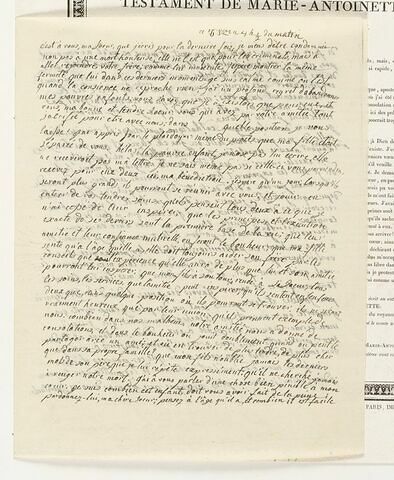 TESTAMENT DE MARIE-ANTOINET
ce 16 8bre a 4 h ½ du matin
c'est a vous, ma soeur, que j'ecris pour la derniere fois, je viens d'etre condamnée
non pas a une mort honteuse, elle ne l'est que pour les criminels, mais a
aller rejoindre votre frere, comme lui innocente, j'espere montrer la meme
fermeté que lui dans ces derniers moments. je suis calme comme on l'est
quand la conscience ne reproche rien, j'ai un profond regret d'abandonner
mes pauvres enfants, vous savez que je n'existois que pour eux, et vous
ma bonne et tendre soeur, vous qui avez par votre amitié tout
sacrifié pour etre avec nous, dans quelle position je vous
laisse! j'ai appris par le plaidoyer meme du procès que ma fille étoit
séparée de vous. helas! la pauvre enfant, je n'ose pas lui ecrire, elle
ne recevroit pas ma lettre je ne sais meme pas si celle ci vous parviendra,
recevez pour eux deux ici, ma bénédiction. j'espere qu'un jour, lorsqu'ils
seront plus grands, ils pourront se reunir avec vous, et jouir en
entier de vos tendres soins, qu'ils pensent tous deux a ce que je
n'ai cessé de leur inspirer, que les principes, et l'execution
exacte de ses devoirs sont la premiere base de la vie; que leur
amitié et leur confiance mutuelle, en feront le bonheur, que ma fille
sente qu'a l'age qu'elle a, elle doit toujours aider son frere par les
conseils que l'experience qu'elle aura de plus que lui et son amitié
pourront lui inspirer; que mon fils a son tour, rende a sa soeur, tous
les soins, les services que l'amitié peut inspirer; qu'ils sentent enfin tous
deux que, dans quelque position ou ils pourront se trouver, ils ne seront
vraiment heureux que par leur union, qu'ils prennent exemple de
nous, combien dans nos malheurs, notre amitié nous a donné de
consolations, et dans le bonheur on jouit doublement quand on peut le
partager avec un ami; et ou en trouver de plus tendre, de plus cher
que dans sa propre famille? que mon fils n'oublie jamais les derniers
mots de son pere, que je lui répète expressement, qu'il ne cherche jamais
a venger notre mort. j'ai a vous parler d'une chose bien penible a mon
coeur. je sais combien cet enfant, doit vous avoir fait de la peine;
pardonnez-lui, ma chere soeur; pensez a l'age qu'il a, et combien il est facile
PARIS, IM